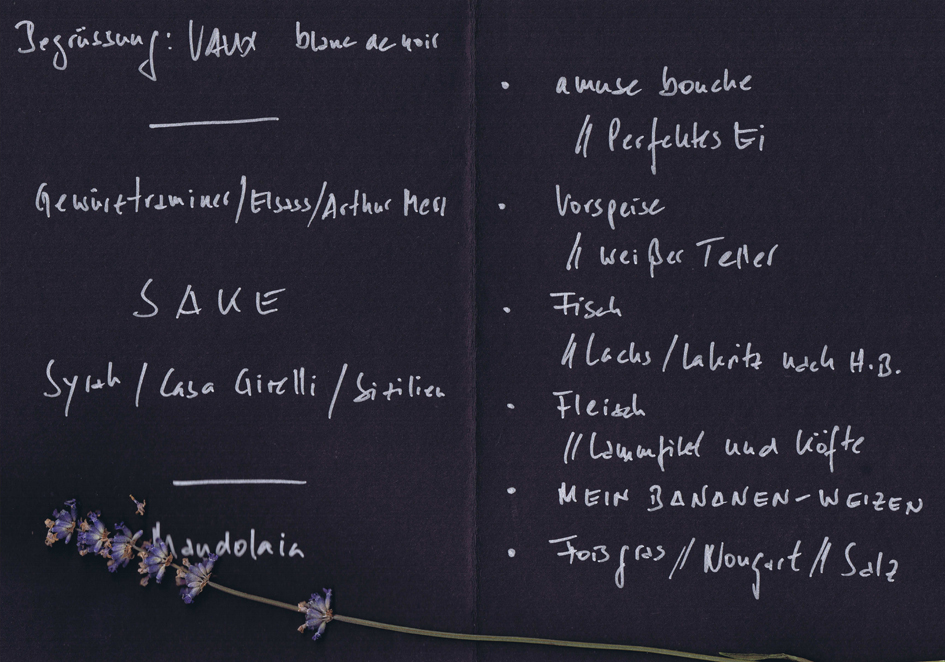 Begrüssung: VAUX blanc de noir
Gewürztraminer/Elsass/Arthur Metz
SAKE
Syrah / Casa Girelli / Sizilien
Mandolaia
• amuse bouche
// Perfektes Ei
• Vorspeise
// weißer Teller
• Fisch
// Lachs / Lakritz nach H.B.
• Fleisch
// Lammfilet und Köfte
• MEIN BANANEN-WEIZEN
• Foisgras // Nougart // Salz